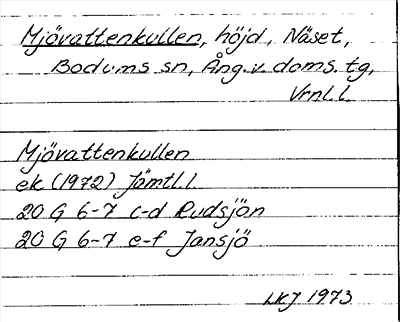 Mjövattenkullen, höjd, Näset,
Bodums sn, Ång.v. doms. tg,
Vrnl. l.
Mjövattenkullen
ek (1972) Jämtl. l.
20 G 6-7 c-d Rudsjön
20 G 6-7 e-f Jansjö
LKJ 1973